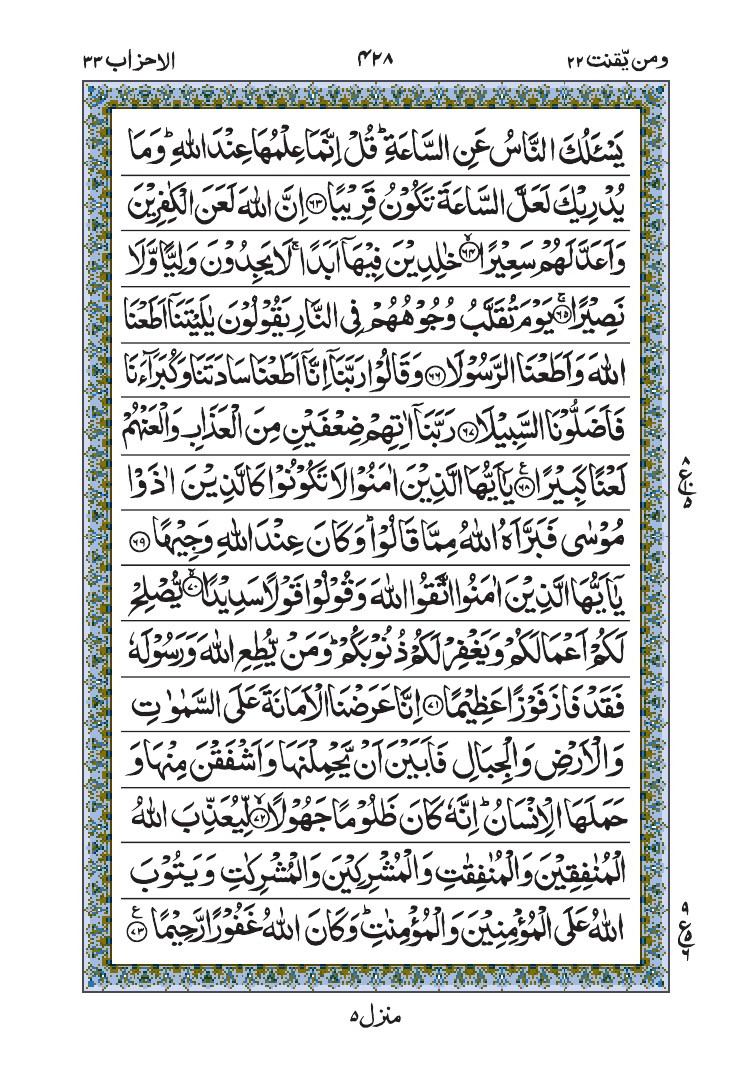 ومن یّقنت ۲۲ ۴۲۸ الاحزاب ۳۳
يَسْـَٔلُكَ النَّاسُ عَنِ السَّاعَةِ ؕ قُلْ اِنَّمَا عِلْمُهَا عِنْدَ اللّٰهِ ؕ وَمَا
يُدْرِيْكَ لَعَلَّ السَّاعَةَ تَكُوْنُ قَرِيْبًا ۶۳ اِنَّ اللّٰهَ لَعَنَ الْكٰفِرِيْنَ
وَاَعَدَّ لَهُمْ سَعِيْرًا ۙ ۶۴ خٰلِدِيْنَ فِيْهَاۤ اَبَدًا ۚ لَا يَجِدُوْنَ وَلِيًّا وَّلَا
نَصِيْرًا ۚ ۶۵ يَوْمَ تُقَلَّبُ وُجُوْهُهُمْ فِى النَّارِ يَقُوْلُوْنَ يٰلَيْتَنَاۤ اَطَعْنَا
اللّٰهَ وَاَطَعْنَا الرَّسُوْلَا ۶۶ وَقَالُوْا رَبَّنَاۤ اِنَّاۤ اَطَعْنَا سَادَتَنَا وَكُبَرَآءَنَا
فَاَضَلُّوْنَا السَّبِيْلَا ۶۷ رَبَّنَاۤ اٰتِهِمْ ضِعْفَيْنِ مِنَ الْعَذَابِ وَالْعَنْهُمْ
لَعْنًا كَبِيْرًا ۶۸ ع يٰۤاَيُّهَا الَّذِيْنَ اٰمَنُوْا لَا تَكُوْنُوْا كَالَّذِيْنَ اٰذَوْا
۸ ع ۵
مُوْسٰى فَبَرَّاَهُ اللّٰهُ مِمَّا قَالُوْا ؕ وَكَانَ عِنْدَ اللّٰهِ وَجِيْهًا ۶۹
يٰۤاَيُّهَا الَّذِيْنَ اٰمَنُوا اتَّقُوا اللّٰهَ وَقُوْلُوْا قَوْلًا سَدِيْدًا ۙ ۷۰ يُّصْلِحْ
لَكُمْ اَعْمَالَكُمْ وَيَغْفِرْ لَكُمْ ذُنُوْبَكُمْ ؕ وَمَنْ يُّطِعِ اللّٰهَ وَرَسُوْلَهٗ
فَقَدْ فَازَ فَوْزًا عَظِيْمًا ۷۱ اِنَّا عَرَضْنَا الْاَمَانَةَ عَلَى السَّمٰوٰتِ
وَالْاَرْضِ وَالْجِبَالِ فَاَبَيْنَ اَنْ يَّحْمِلْنَهَا وَاَشْفَقْنَ مِنْهَا وَ
حَمَلَهَا الْاِنْسَانُ ؕ اِنَّهٗ كَانَ ظَلُوْمًا جَهُوْلًا ۙ ۷۲ لِّيُعَذِّبَ اللّٰهُ
الْمُنٰفِقِيْنَ وَالْمُنٰفِقٰتِ وَالْمُشْرِكِيْنَ وَالْمُشْرِكٰتِ وَيَتُوْبَ
اللّٰهُ عَلَى الْمُؤْمِنِيْنَ وَالْمُؤْمِنٰتِ ؕ وَكَانَ اللّٰهُ غَفُوْرًا رَّحِيْمًا ۷۳ ع
۹ ع ۶
منزل ۵